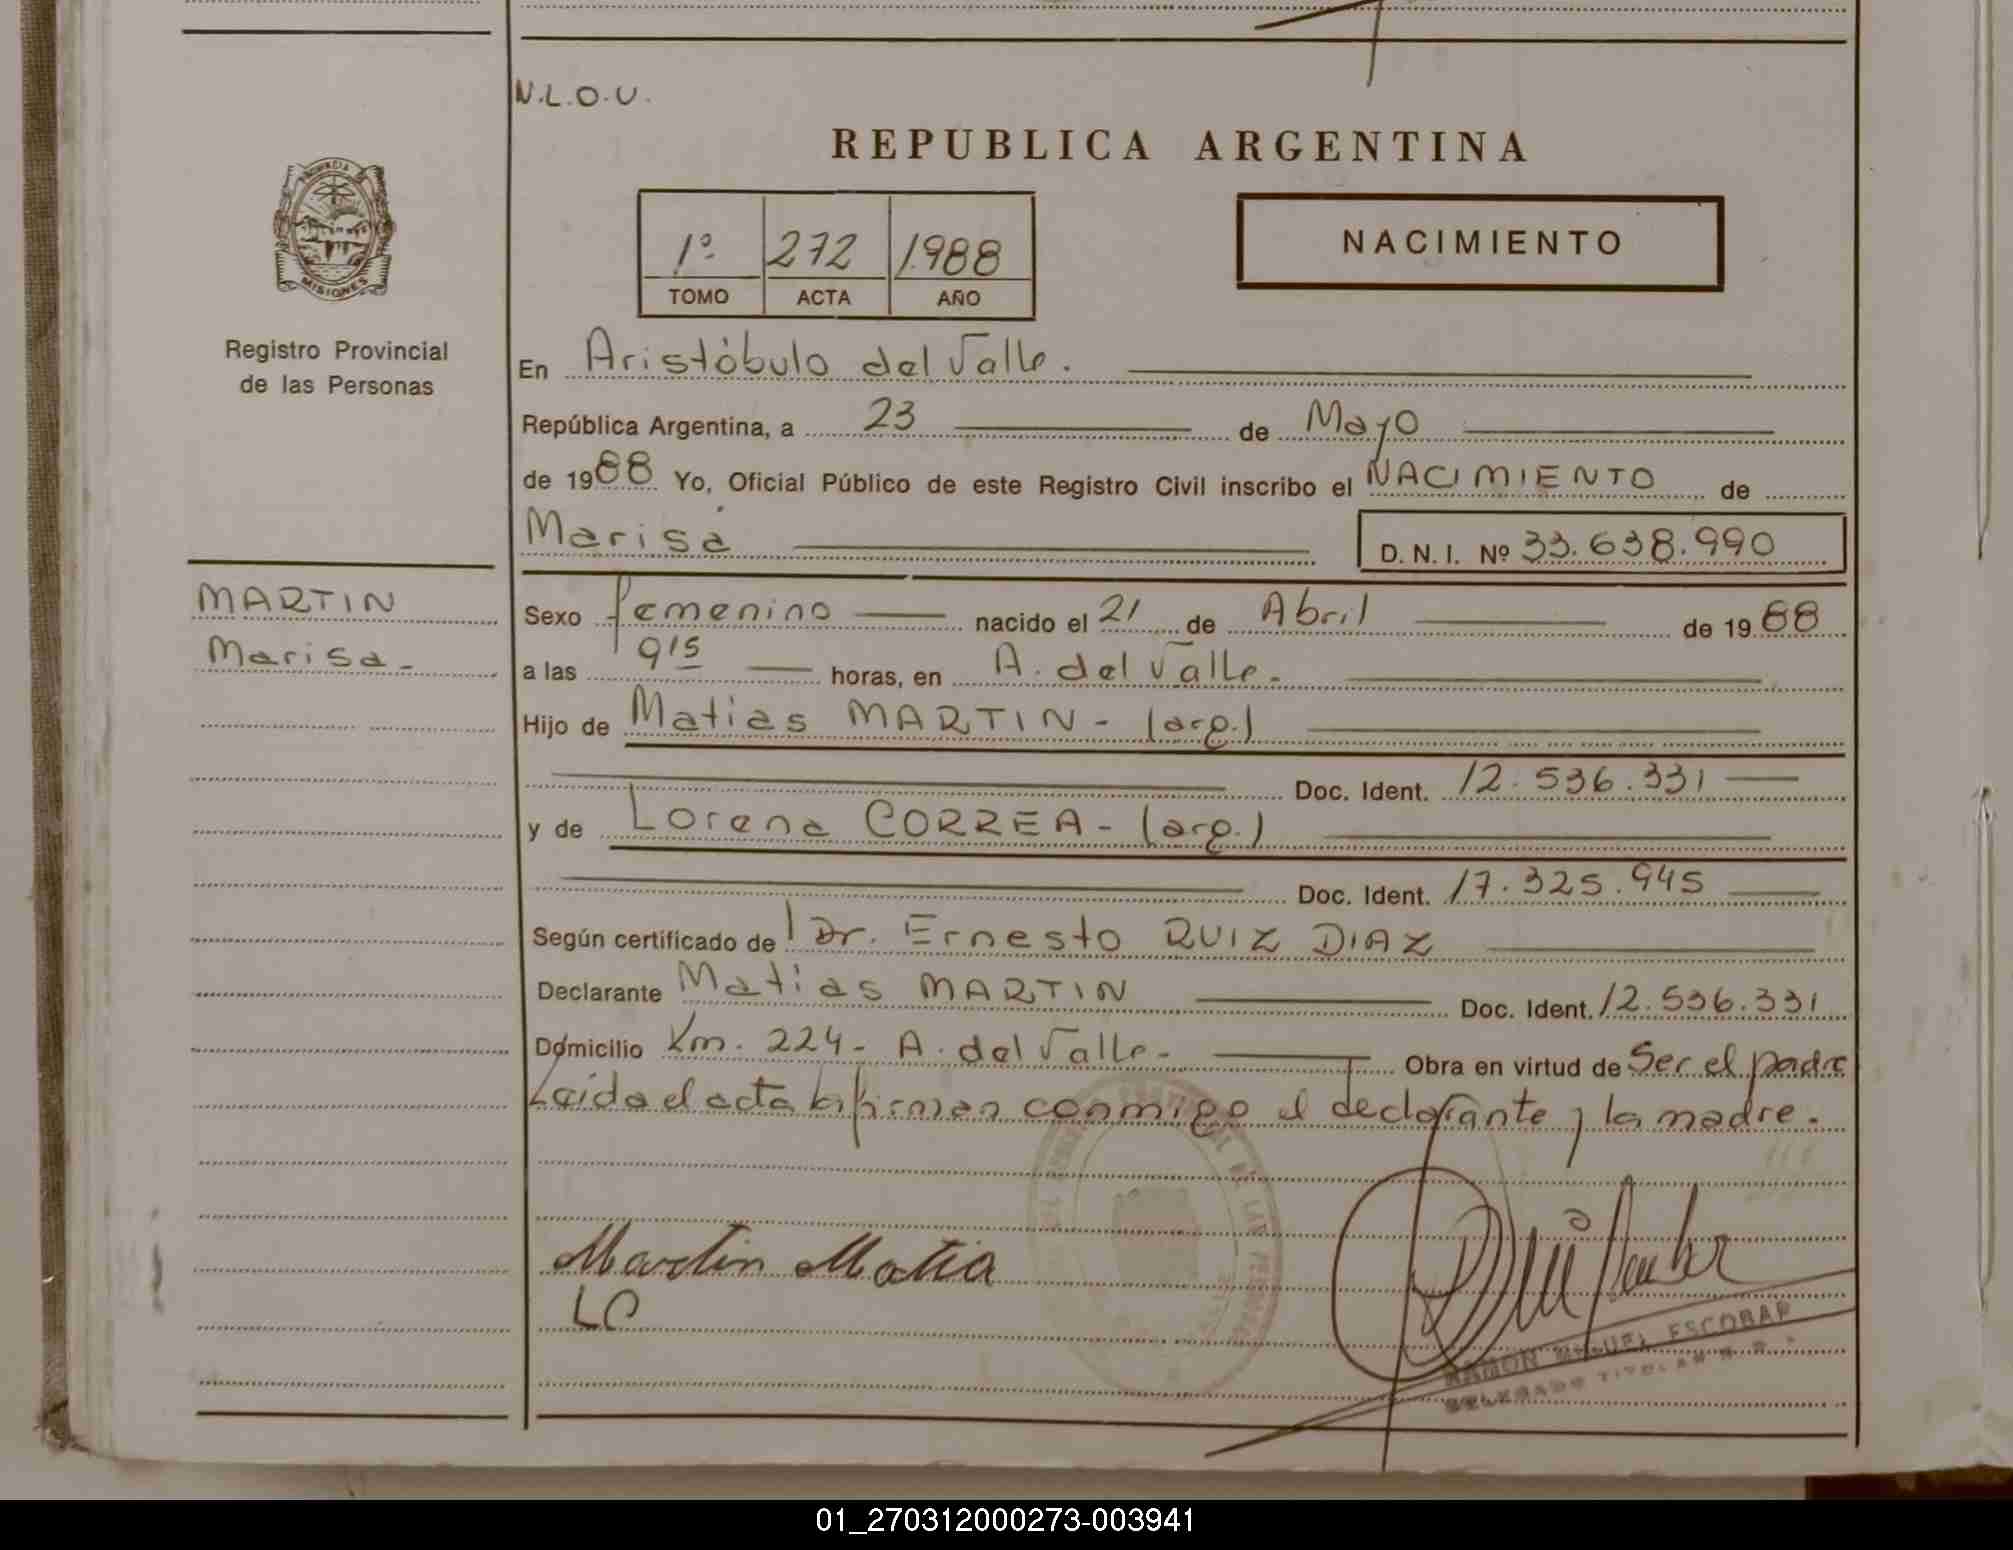 N.L.O.U.
REPUBLICA ARGENTINA
PROVINCIA
MISIONES
1º 272 1988
TOMO ACTA AÑO
NACIMIENTO
Registro Provincial
de las Personas
En Aristóbulo del Valle.
República Argentina, a 23 de Mayo
de 1988 Yo, Oficial Público de este Registro Civil inscribo el NACIMIENTO de
Marisa D. N. I. Nº 33.638.990
MARTIN
Marisa-
Sexo femenino nacido el 21 de Abril de 1988
a las 9 15 horas, en A. del Valle.-
Hijo de Matias MARTIN - (arg.)
Doc. Ident. 12.536.331
y de Lorena CORREA - (arg.)
Doc. Ident. 17.325.945
Según certificado de Dr. Ernesto RUIZ DIAZ
Declarante Matias MARTIN Doc. Ident. 12.536.331
Domicilio Km. 224- A. del Valle.- Obra en virtud de Ser el padre
Leida el acta la firman conmigo el declarante y la madre.
Martin Matia
LC
RAMON MIGUEL ESCOBAR
DELEGADO TITULAR
01_270312000273-003941